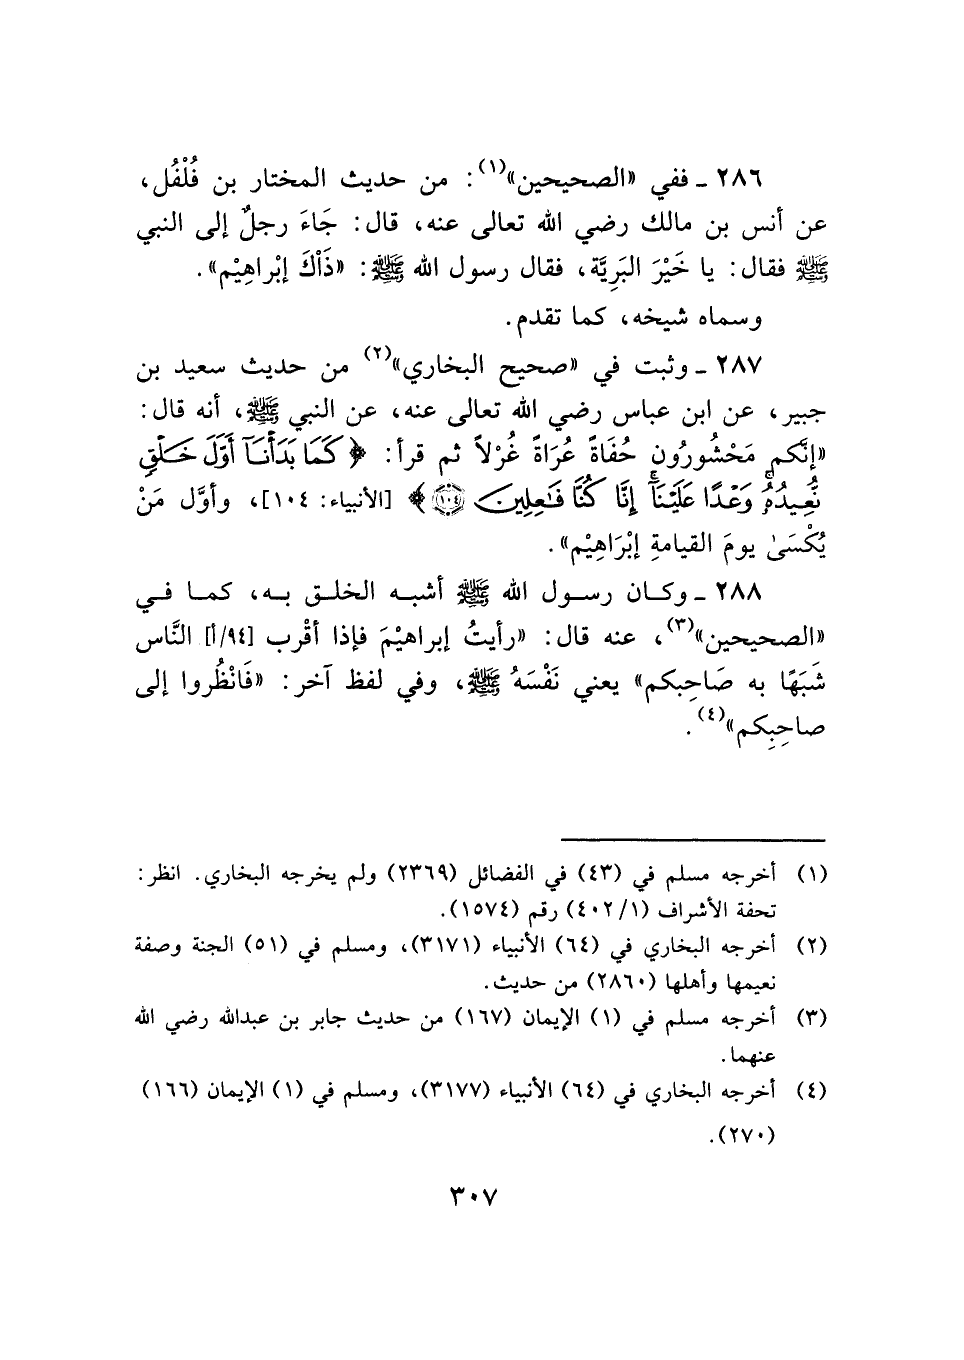 ٢٨٦ ـ ففي «الصحيحين»(١): من حديث المختار بن فُلْفُل،
عن أنس بن مالك رضي الله تعالى عنه، قال: جَاءَ رجلٌ إلى النبي
ﷺ فقال: يا خَيْرَ البَرِيَّة، فقال رسول الله ﷺ: «ذَاْكَ إبْراهِيْم».
وسماه شيخه، كما تقدم.
٢٨٧ ـ وثبت في «صحيح البخاري»(٢) من حديث سعيد بن
جبير، عن ابن عباس رضي الله تعالى عنه، عن النبي ﷺ، أنه قال:
«إنَّكم مَحْشُورُون حُفَاةً عُرَاةً غُرْلاً ثم قرأ: ﴿كَمَا بَدَأْنَآ أَوَّلَ خَلْقٍ
نُّعِيدُهُۥ وَعْدًا عَلَيْنَآ إِنَّا كُنَّا فَٰعِلِينَ ١٠٤﴾ [الأنبياء: ١٠٤]، وأوَّل مَنْ
يُكْسَىٰ يومَ القيامةِ إبْرَاهِيْم».
٢٨٨ ـ وكان رسول الله ﷺ أشبه الخلق به، كما في
«الصحيحين»(٣)، عنه قال: «رأيتُ إبراهيْمَ فإذا أقْرب [٩٤/أ] النَّاس
شَبَهًا به صَاحِبكم» يعني نَفْسَهُ ﷺ، وفي لفظ آخر: «فَانْظُروا إلى
صاحِبِكم»(٤).
(١) أخرجه مسلم في (٤٣) في الفضائل (٢٣٦٩) ولم يخرجه البخاري. انظر:
تحفة الأشراف (٤٠٢/١) رقم (١٥٧٤).
(٢) أخرجه البخاري في (٦٤) الأنبياء (٣١٧١)، ومسلم في (٥١) الجنة وصفة
نعيمها وأهلها (٢٨٦٠) من حديث.
(٣) أخرجه مسلم في (١) الإيمان (١٦٧) من حديث جابر بن عبدالله رضي الله
عنهما.
(٤) أخرجه البخاري في (٦٤) الأنبياء (٣١٧٧)، ومسلم في (١) الإيمان (١٦٦)
(٢٧٠).
٣٠٧